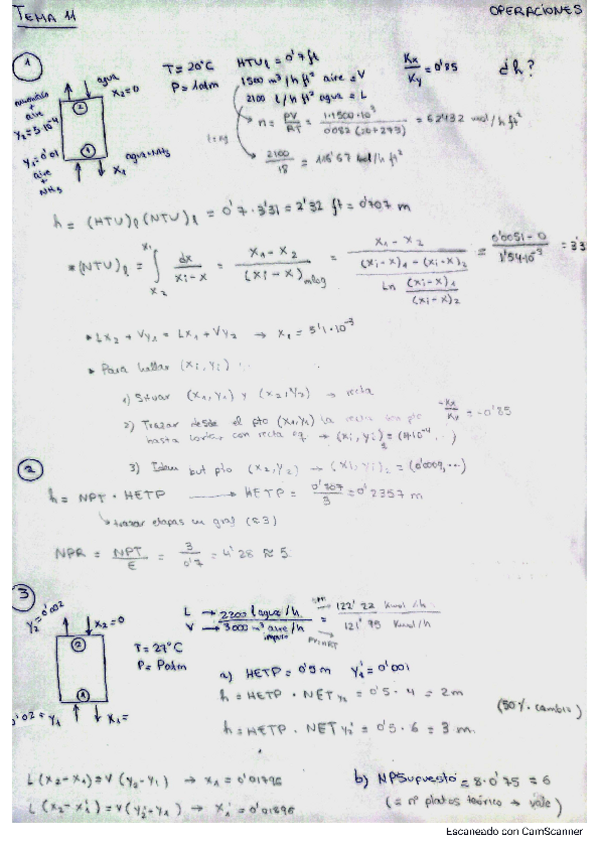 TEMA 11
OPERACIONES
1
agua
x₂=0
aire
y₂=5·10⁻⁴
y₁=0'01
aire
+
NH₃
x₁
agua+NH₃
2
1
T=20°C
P=1atm
HTUₗ=0'7ft
1500 m³/h ft² aire = V
2100 l/h ft² agua = L
Kx/Ky=0'85
¿h?
n = PV/RT = 1·1500·10³/0'082 (20+273) = 62432 mol/h ft²
2100/18 = 116'67 kmol/h ft²
h = (HTU)ₗ(NTU)ₗ = 0'7·3'31 = 2'32 ft = 0'707 m
*(NTU)ₗ = ∫ₓ₂ˣ¹ dx/xi-x = x₁-x₂/(xi-x)mlog = x₁-x₂/((xi-x)₁-(xi-x)₂/Ln (xi-x)₁/(xi-x)₂) = 0'0051-0/1'54·10⁻³ = 3'3
Lx₂ + Vy₁ = Lx₁ + Vy₂ → x₁ = 5'1·10⁻³
Para hallar (xi, yi):
1) Situar (x₁,y₁) y (x₂,y₂) → recta
2) Trazar desde el pto (x₁,y₁) la recta con pte -Kx/Ky = -0'85
hasta cortar con recta eq. → (xi, yi)
3) Idem pto (x₂,y₂) → (xi, yi)₂ = (0'0009, ...)
2
h = NPT · HETP → HETP = 0'707/3 = 0'2357 m
trazar etapas en graf (≈3)
NPR = NPT/E = 3/0'7 = 4'28 ≈ 5
3
y₂=0'002
x₂=0
2
1
0'02=y₁
x₁=
T=27°C
P=Patm
L → 2200 l agua/h = 122'22 Kmol/h
V → 3000 m³ aire/h
impuro
121'95 Kmol/h
PV=nRT
a) HETP=0'5m y₂'=0'001
h = HETP · NET y₂ = 0'5 · 4 = 2m
h = HETP · NET y₂' = 0'5 · 6 = 3 m.
(50% cambia)
L(x₂-x₁)=V(y₂-y₁) → x₁=0'01796
L(x₂-x₁')=V(y₂'-y₁) → x₁'=0'01896
b) NPSupuesto = 8·0'75 = 6
(= nº platos teórico → vale)
Escaneado con CamScanner